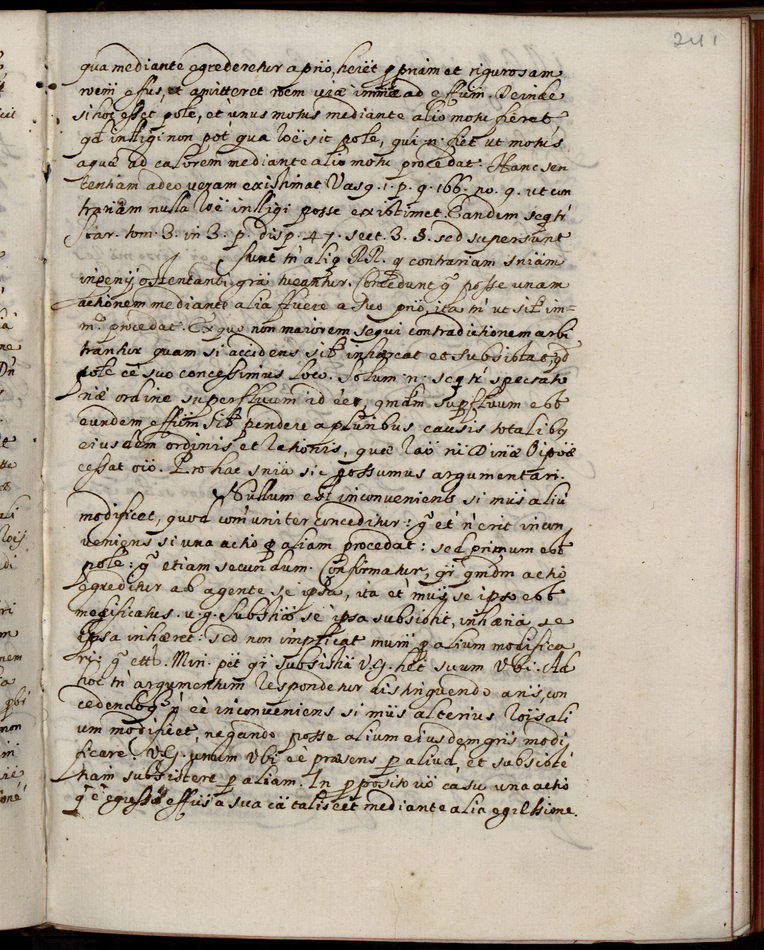 241
qua mediante egrederetur a prio, heret ppriam et rigurosam
roem effus, et amitteret roem uiæ immæ ad effum. Deinde
si hoc esset pole, et unus motus mediante alio motu fieret
qd inlligi non pot qua roe sit pole, qui n. fiet ut motus
aquæ ad calorem mediante alio motu procedat. Hanc sen
tentiam adeo ueram existimat Vasq. 1. p. q. 166. no. 9. ut con
trariam nulla roe inlligi posse existimet. Eandem seqtr
Suar. tom. 3. in 3. p. disp. 47. sect. 3. §. sed supersunt
Sunt tn aliq RR. q contrariam sniam
ingenij ostentandi grã tueantur. Concedunt q posse unam
actionem mediante alia fluere a suo prio, ita tn ut sit im=
m. procedat. Ex quo non maiorem sequi contradictionem arbi
trantur quam si accidens sibi inhæreat et subsistat, qd
pole ee suo concessimus loco. Solum n. seqtr spectato
næ ordine superfluum id ee, qmdm supfluum est
eundem effum sit pendere a pluribus causis totalibus
eiusdem ordinis et letionis, quæ rao in Dinæ Oipoæ
cessat oio. Pro hac snia sic possumus argumentari.
Nullum est inconueniens si mus aliu
modificet, quod comuniter conceditur: q et n erit incon
ueniens si una actio p aliam procedat: sed primum est
pole: q etiam secundum. Confirmatur, qr qmdm actio
egreditur ab agente se ipsa, ita et mus se ipso est
modificatus. u. g. subsista se ipsa subsistit, inhæria se
ipsa inhæret: sed non implicat mum p alium modifica
ri: q etc. Min. pet qr subsistia V.G. het suum Vbi. Ad
hoc tn argumentum respondetur distinguendo ans, con
cedendo q n ee inconueniens si mus alterius rois ali
um modificet, negando posse alium eiusdem gris modi
ficare. V.G. unum Vbi ee præsens p aliud, et subsiste
tiam subsistere p aliam. In pposito uo casu una actio
q e egressus effus a sua ca talis eet mediante alia egressione.